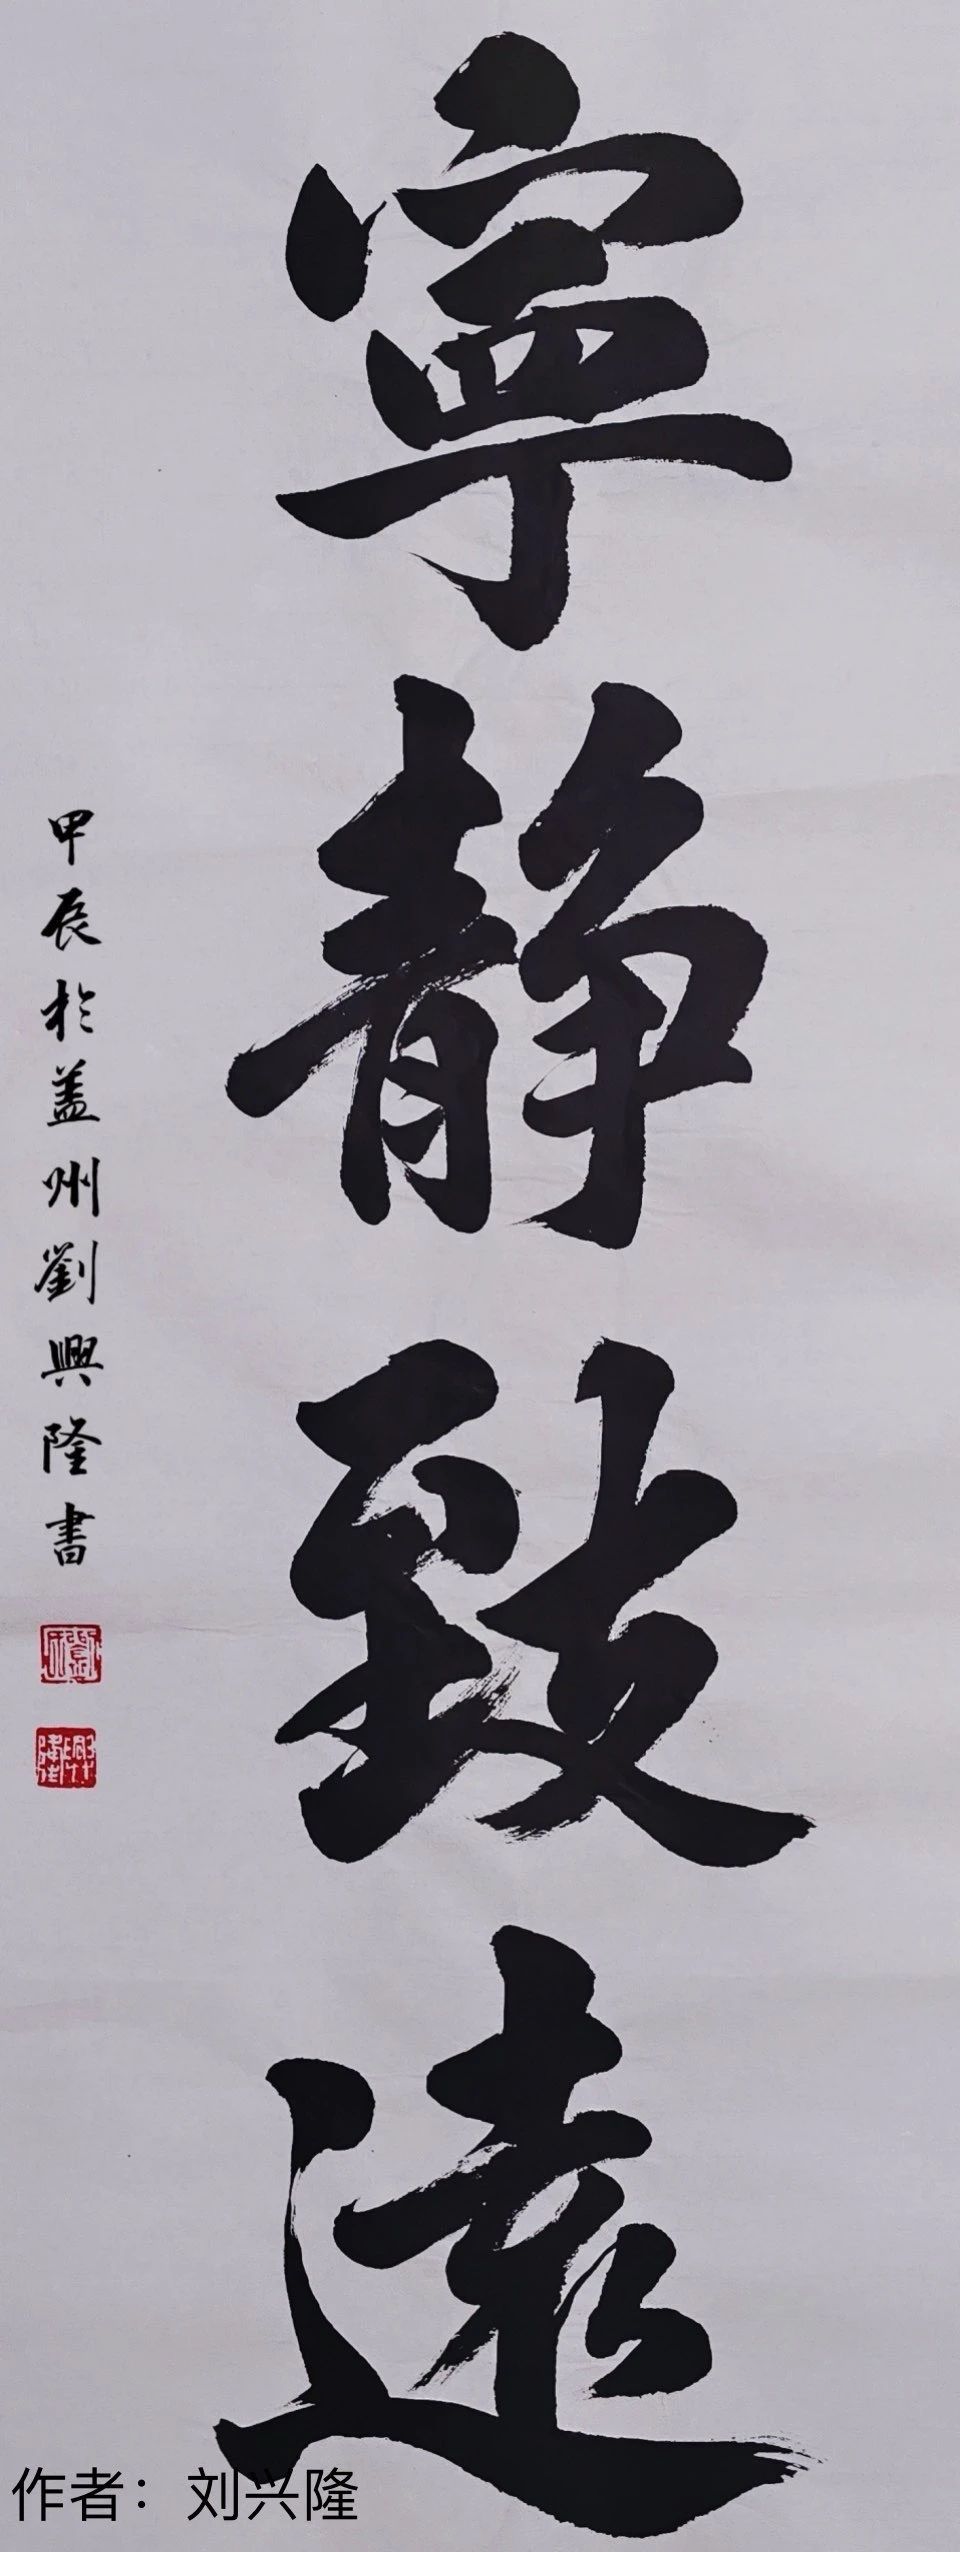 寧靜致遠
甲辰於蓋州劉興隆書
作者：刘兴隆